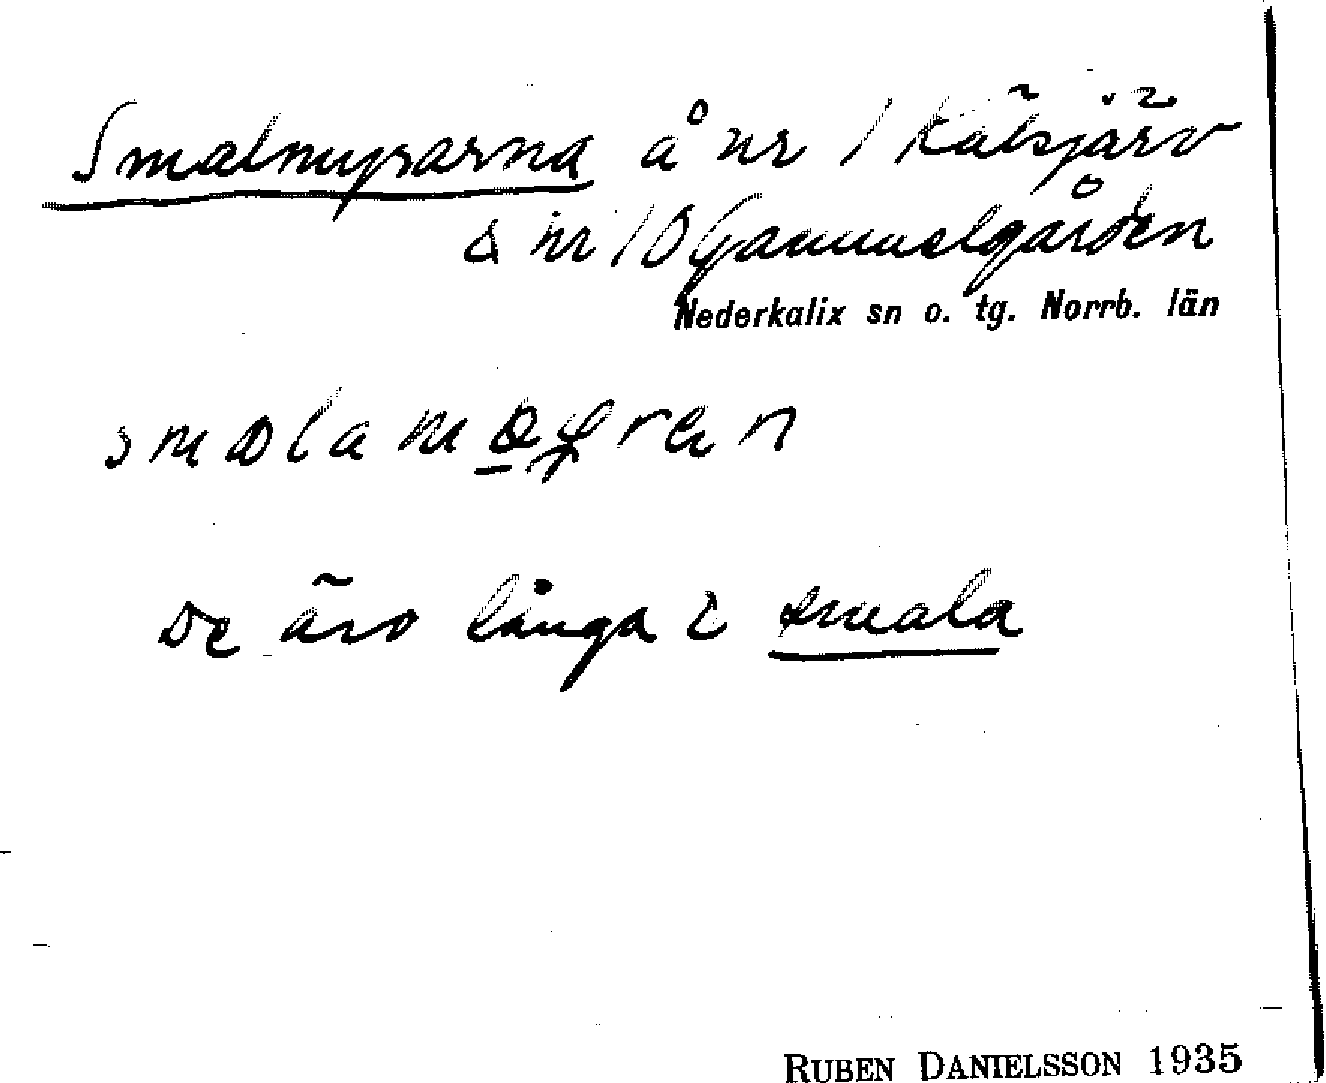 Smalmyrarna å nr 1 Kälsjärv
& nr 10 Gammelgården
Nederkalix sn o. tg. Norrb. län
De äro långa & smala
RUBEN DANIELSSON 1935